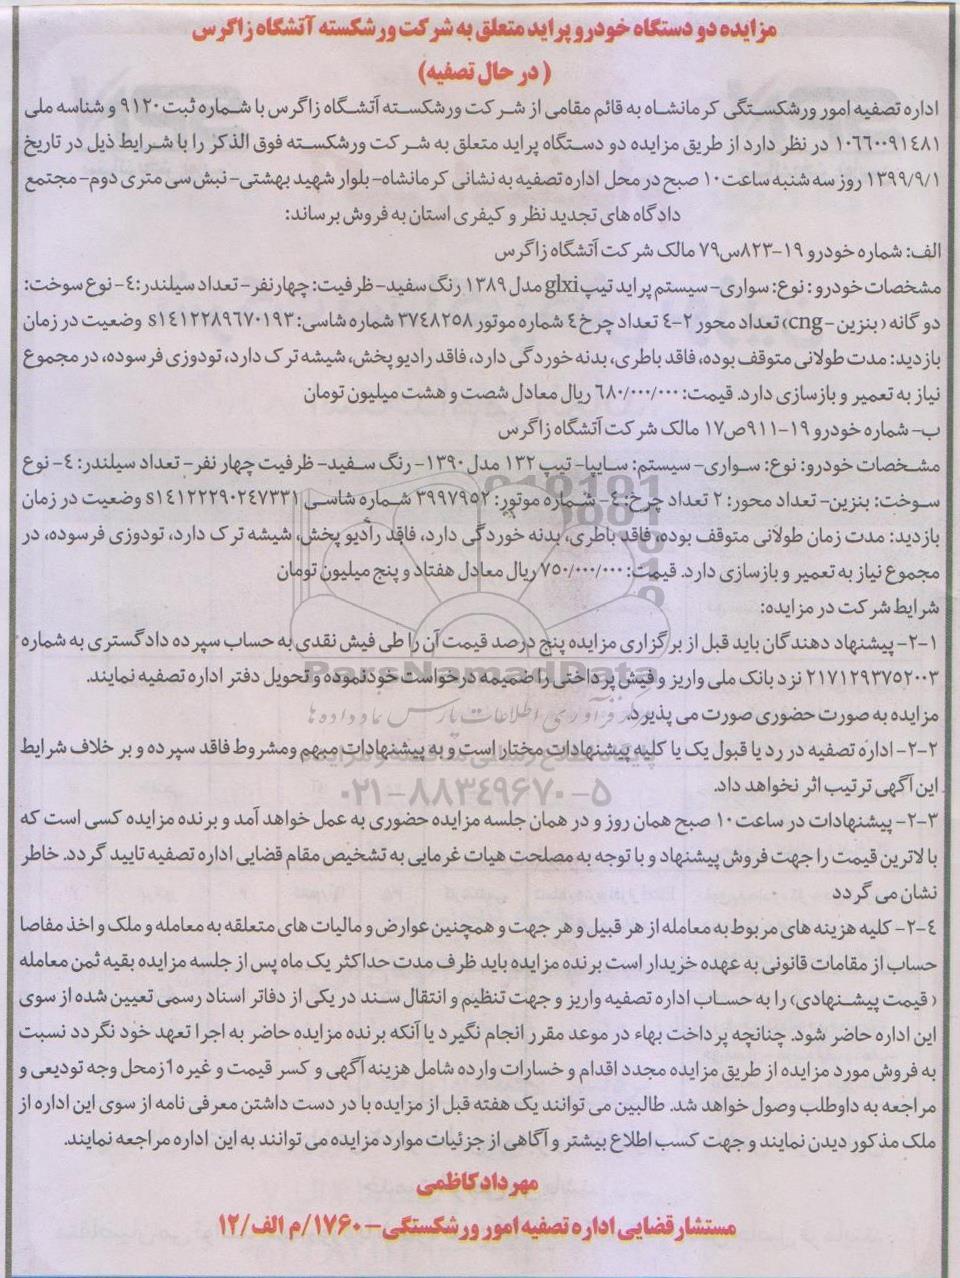 مزایده دو دستگاه خودرو پراید متعلق به شرکت ورشکسته آتشگاه زاگرس
(در حال تصفیه)
اداره تصفیه امور ورشکستگی کرمانشاه به قائم مقامی از شرکت ورشکسته آتشگاه زاگرس با شماره ثبت ۹۱۲۰ و شناسه ملی
۱۰۶۶۰۰۹۱٤۸۱ در نظر دارد از طریق مزایده دو دستگاه پراید متعلق به شرکت ورشکسته فوق الذکر را با شرایط ذیل در تاریخ
۱۳۹۹/۹/۱ روز سه شنبه ساعت ۱۰ صبح در محل اداره تصفیه به نشانی کرمانشاه- بلوار شهید بهشتی- نبش سی متری دوم- مجتمع
دادگاه های تجدید نظر و کیفری استان به فروش برساند:
الف: شماره خودرو ۱۹-۸۲۳س۷۹ مالک شرکت آتشگاه زاگرس
مشخصات خودرو: نوع: سواری- سیستم پراید تیپ glxi مدل ۱۳۸۹ رنگ سفید- ظرفیت: چهارنفر- تعداد سیلندر:٤- نوع سوخت:
دو گانه (بنزین-cng) تعداد محور ۲-٤ تعداد چرخ ٤ شماره موتور ۳۷٤۸۲۵۸ شماره شاسی: s۱٤۱۲۲۸۹٦۷۰۱۹۳ وضعیت در زمان
بازدید: مدت طولانی متوقف بوده، فاقد باطری، بدنه خوردگی دارد، فاقد رادیو پخش، شیشه ترک دارد، تودوزی فرسوده، در مجموع
نیاز به تعمیر و بازسازی دارد. قیمت: ٦۸۰/۰۰۰/۰۰۰ ریال معادل شصت و هشت میلیون تومان
ب- شماره خودرو ۱۹-۹۱۱ص۱۷ مالک شرکت آتشگاه زاگرس
مشخصات خودرو: نوع: سواری- سیستم: سایپا- تیپ ۱۳۲ مدل ۱۳۹۰- رنگ سفید- ظرفیت چهار نفر- تعداد سیلندر: ٤- نوع
سوخت: بنزین- تعداد محور: ۲ تعداد چرخ: ٤- شماره موتور: ۳۹۹۷۹۵۲ شماره شاسی s۱٤۱۲۲۲۹۰۲٤۷۳۳۱ وضعیت در زمان
بازدید: مدت زمان طولانی متوقف بوده، فاقد باطری، بدنه خوردگی دارد، فاقد رادیو پخش، شیشه ترک دارد، تودوزی فرسوده، در
مجموع نیاز به تعمیر و بازسازی دارد. قیمت: ۷۵۰/۰۰۰/۰۰۰ ریال معادل هفتاد و پنج میلیون تومان
شرایط شرکت در مزایده:
۲-۱- پیشنهاد دهندگان باید قبل از برگزاری مزایده پنج درصد قیمت آن را طی فیش نقدی به حساب سپرده دادگستری به شماره
۲۱۷۱۲۹۳۷۵۲۰۰۳ نزد بانک ملی واریز و فیش پرداختی را ضمیمه درخواست خود نموده و تحویل دفتر اداره تصفیه نمایند.
مزایده به صورت حضوری صورت می پذیرد.
۲-۲- اداره تصفیه در رد یا قبول یک یا کلیه پیشنهادات مختار است و به پیشنهادات مبهم ومشروط فاقد سپرده و بر خلاف شرایط
این آگهی ترتیب اثر نخواهد داد.
۲-۳- پیشنهادات در ساعت ۱۰ صبح همان روز و در همان جلسه مزایده حضوری به عمل خواهد آمد و برنده مزایده کسی است که
بالاترین قیمت را جهت فروش پیشنهاد و با توجه به مصلحت هیات غرمایی به تشخیص مقام قضایی اداره تصفیه تایید گردد. خاطر
نشان می گردد
۲-٤- کلیه هزینه های مربوط به معامله از هر قبیل و هر جهت و همچنین عوارض و مالیات های متعلقه به معامله و ملک و اخذ مفاصا
حساب از مقامات قانونی به عهده خریدار است برنده مزایده باید ظرف مدت حداکثر یک ماه پس از جلسه مزایده بقیه ثمن معامله
(قیمت پیشنهادی) را به حساب اداره تصفیه واریز و جهت تنظیم و انتقال سند در یکی از دفاتر اسناد رسمی تعیین شده از سوی
این اداره حاضر شود. چنانچه پرداخت بهاء در موعد مقرر انجام نگیرد یا آنکه برنده مزایده حاضر به اجرا تعهد خود نگردد نسبت
به فروش مورد مزایده از طریق مزایده مجدد اقدام و خسارات وارده شامل هزینه آگهی و کسر قیمت و غیره ازمحل وجه تودیعی و
مراجعه به داوطلب وصول خواهد شد. طالبین می توانند یک هفته قبل از مزایده با در دست داشتن معرفی نامه از سوی این اداره از
ملک مذکور دیدن نمایند و جهت کسب اطلاع بیشتر و آگاهی از جزئیات موارد مزایده می توانند به این اداره مراجعه نمایند.
مهرداد کاظمی
مستشار قضایی اداره تصفیه امور ورشکستگی- ۱۷۶۰/م الف/۱۲
ParsNamadData
مرکز فرآوری اطلاعات پارس نماد داده ها
۰۲۱-۸۸۳۴۹۶۷۰-۵